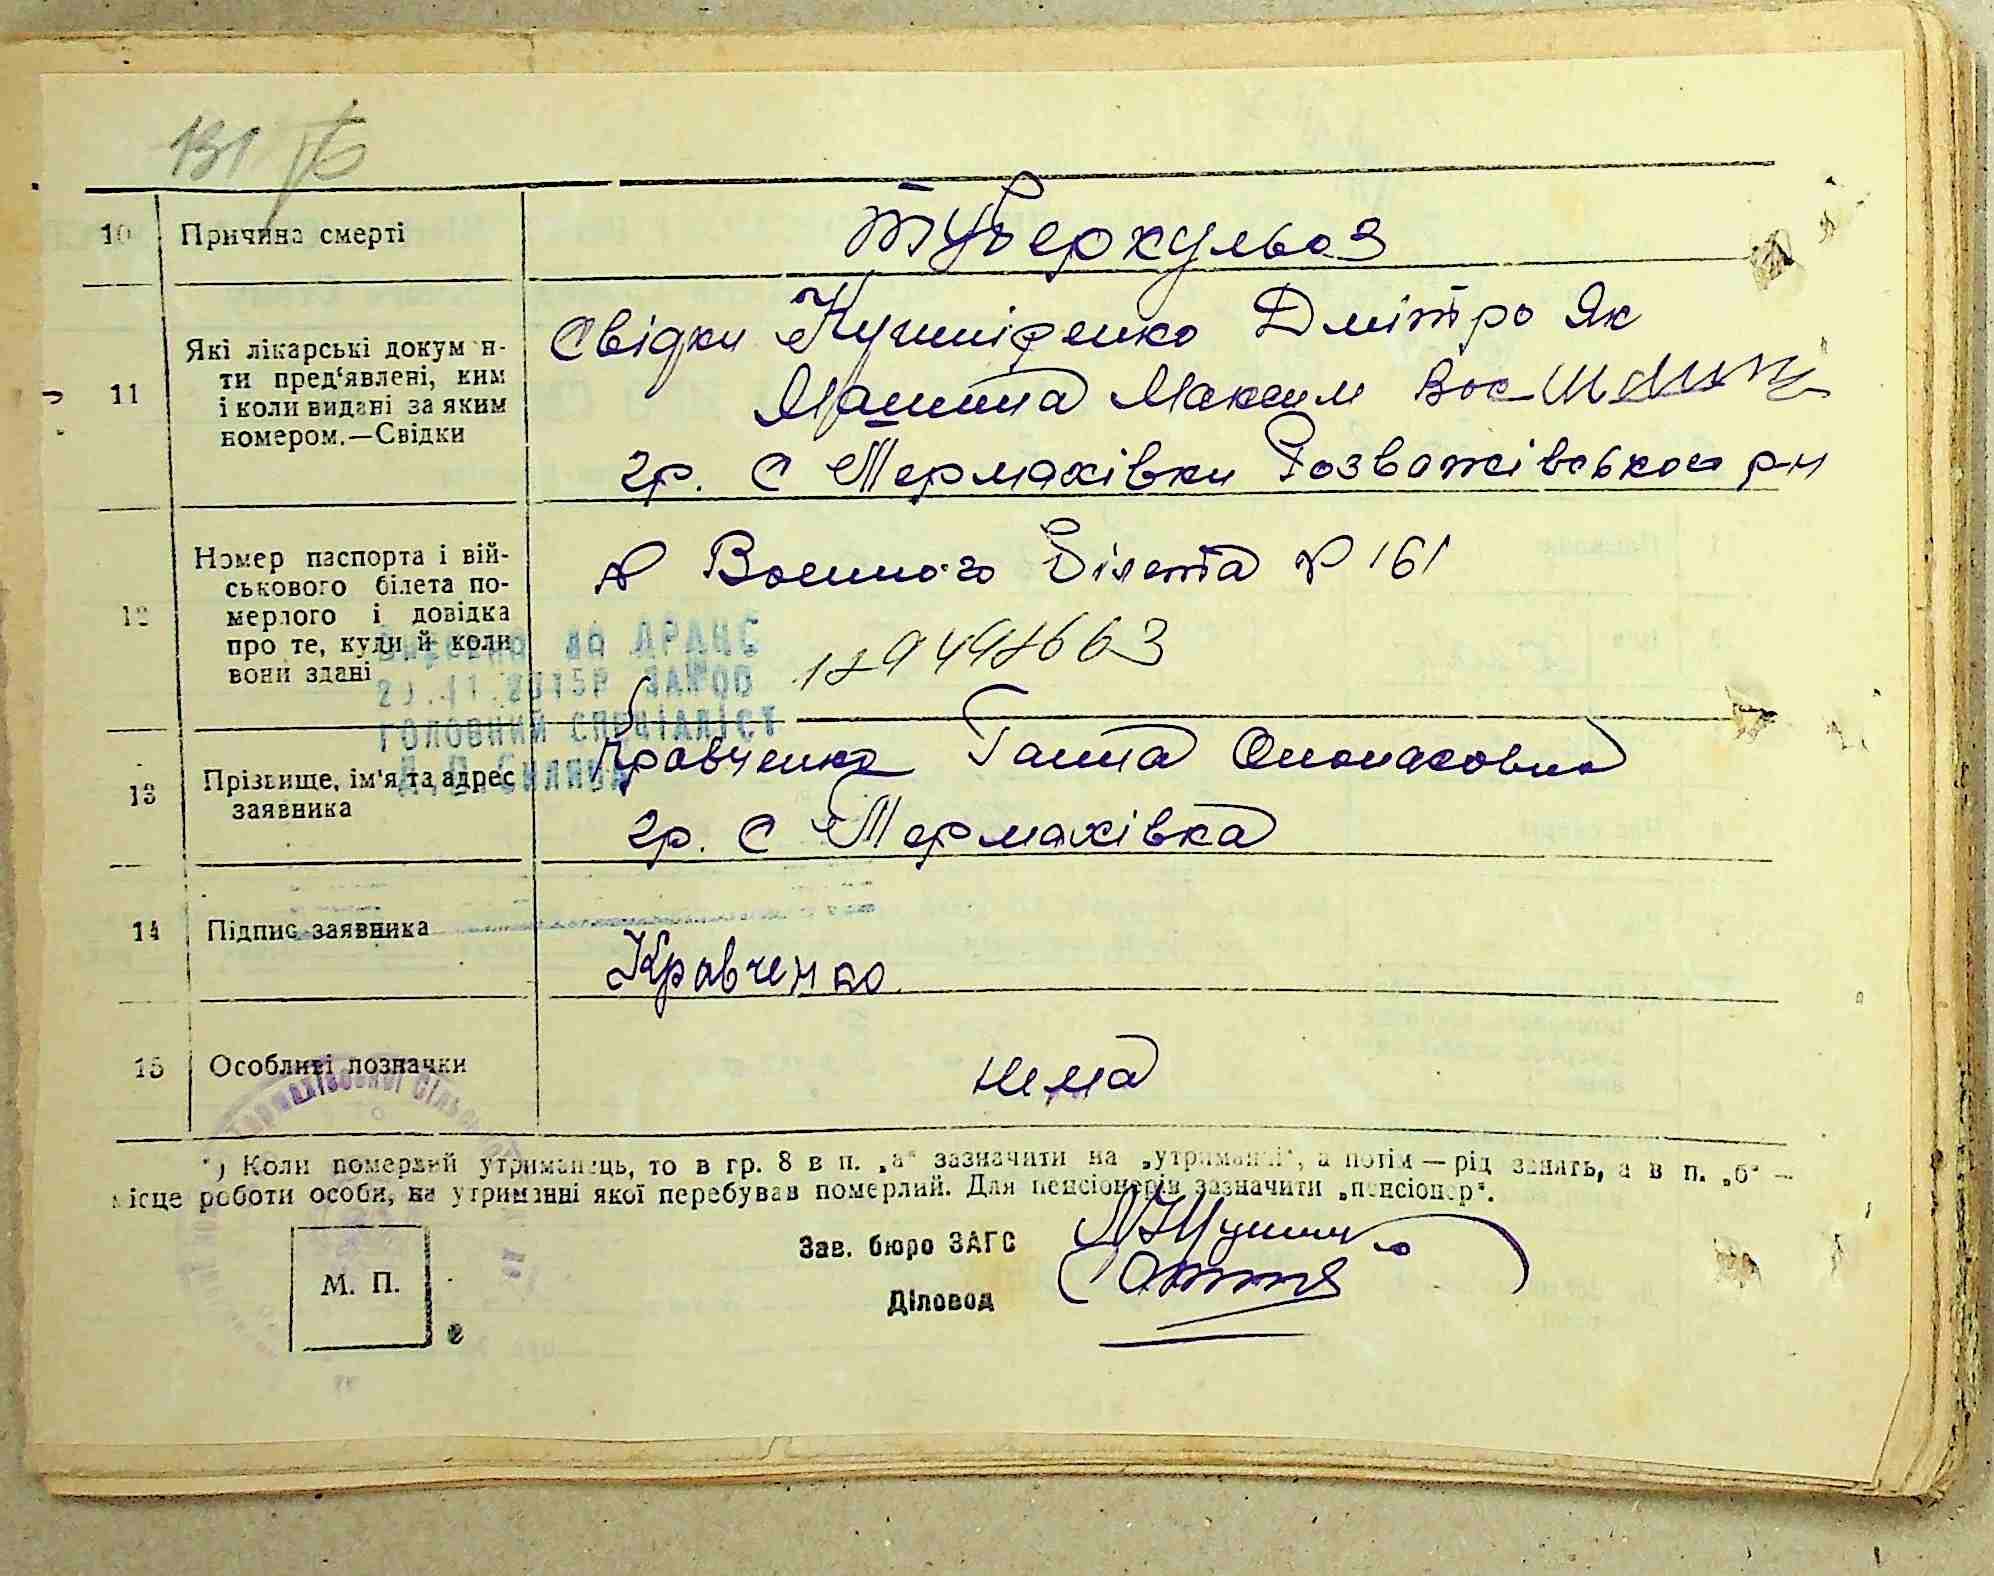 131
10 Причина смерті
Туберкульоз
11 Які лікарські докумен-
ти пред'явлені, ким
і коли видані за яким
номером.—Свідки
Свідки Кушніренко Дмітро Як
Максим Вас
гр. С Термахівки Розважівського рн
12 Номер паспорта і вій-
ськового білета по-
мерлого і довідка
про те, куди й коли
вони здані
Военного Білета № 161
ВНЕСЕНО ДО ДРАЦС
ГОЛОВНИЙ СПЕЦІАЛІСТ
13 Прізвище, ім'я та адрес
заявника
Кравченко Ганна Опонасовна
гр. С Термахівка
14 Підпис заявника
Кравченко
15 Особливі позначки
нема
*) Коли померлий утриманець, то в гр. 8 в п. „а“ зазначити на „утриманні“, а потім — рід занять, а в п. „б“ —
місце роботи особи, на утриманні якої перебував померлий. Для пенсіонерів зазначити „пенсіонер“.
Зав. бюро ЗАГС
М. П.
Діловод